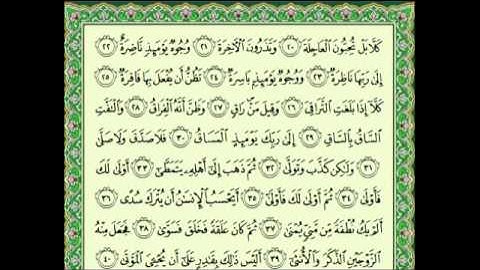 كَلَّا بَلْ تُحِبُّونَ الْعَاجِلَةَ ٢٠ وَتَذَرُونَ الْآخِرَةَ ٢١ وُجُوهٌ يَوْمَئِذٍ نَاضِرَةٌ ٢٢
إِلَىٰ رَبِّهَا نَاظِرَةٌ ٢٣ وَوُجُوهٌ يَوْمَئِذٍ بَاسِرَةٌ ٢٤ تَظُنُّ أَنْ يُفْعَلَ بِهَا فَاقِرَةٌ ٢٥
كَلَّا إِذَا بَلَغَتِ التَّرَاقِيَ ٢٦ وَقِيلَ مَنْ رَاقٍ ٢٧ وَظَنَّ أَنَّهُ الْفِرَاقُ ٢٨ وَالْتَفَّتِ
السَّاقُ بِالسَّاقِ ٢٩ إِلَىٰ رَبِّكَ يَوْمَئِذٍ الْمَسَاقُ ٣٠ فَلَا صَدَّقَ وَلَا صَلَّىٰ
٣١ وَلَٰكِنْ كَذَّبَ وَتَوَلَّىٰ ٣٢ ثُمَّ ذَهَبَ إِلَىٰ أَهْلِهِ يَتَمَطَّىٰ ٣٣ أَوْلَىٰ لَكَ
فَأَوْلَىٰ ٣٤ ثُمَّ أَوْلَىٰ لَكَ فَأَوْلَىٰ ٣٥ أَيَحْسَبُ الْإِنْسَانُ أَنْ يُتْرَكَ سُدًى ٣٦
أَلَمْ يَكُ نُطْفَةً مِنْ مَنِيٍّ يُمْنَىٰ ٣٧ ثُمَّ كَانَ عَلَقَةً فَخَلَقَ فَسَوَّىٰ ٣٨ فَجَعَلَ مِنْهُ
الزَّوْجَيْنِ الذَّكَرَ وَالْأُنْثَىٰ ٣٩ أَلَيْسَ ذَٰلِكَ بِقَادِرٍ عَلَىٰ أَنْ يُحْيِيَ الْمَوْتَىٰ ٤٠